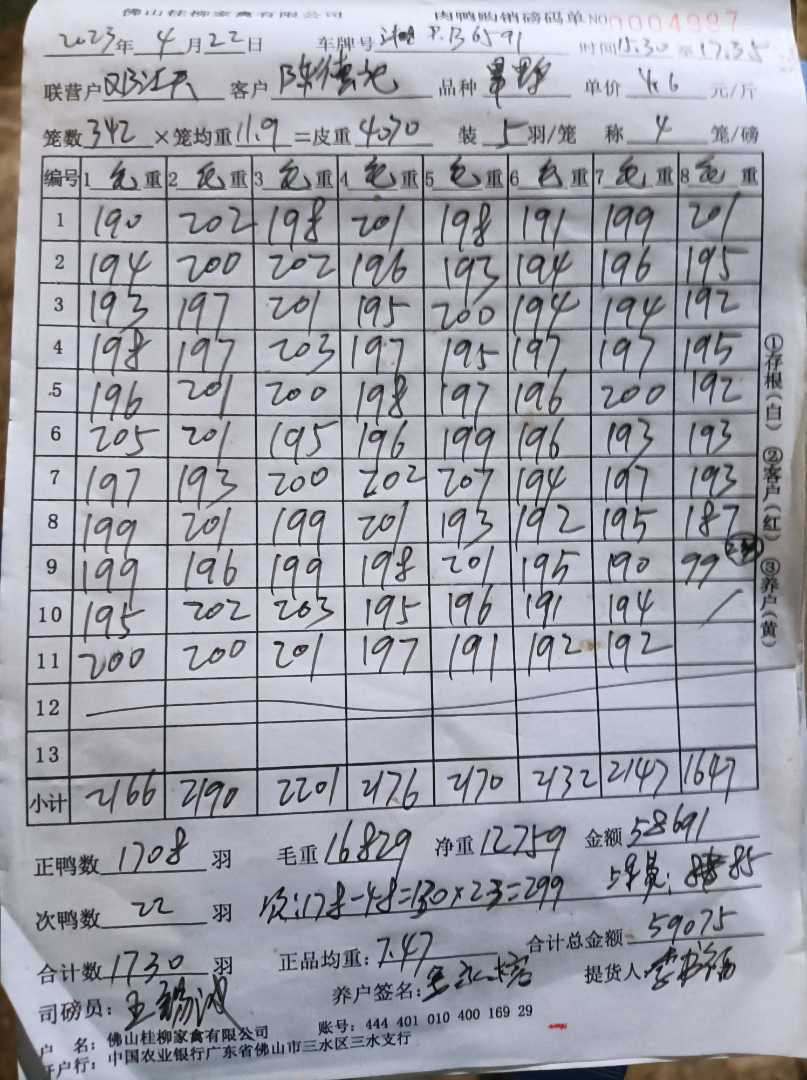 佛山桂柳家禽有限公司 肉鸭购销磅码单 NO 0004987
2023年 4月22日 车牌号 B6591 时间15.30至17.35
联营户 客户 陈德 品种 单价 4.6 元/斤
笼数 342 ×笼均重 11.9 =皮重 4070 装 5 羽/笼 称 4 笼/磅
编号 1 毛重 2 毛重 3 毛重 4 毛重 5 毛重 6 毛重 7 毛重 8 毛重
1 190 202 198 201 198 191 199 201
2 194 200 202 196 193 194 196 195
3 193 197 201 195 200 194 194 192
4 198 197 203 197 195 197 197 195
5 196 201 200 198 197 196 200 192
6 205 201 195 196 199 196 193 193
7 197 193 200 202 207 194 197 193
8 199 201 199 201 193 192 195 187
9 199 196 199 198 201 195 190 99
10 195 202 203 195 196 191 194
11 200 200 201 197 191 192 192
12
13
小计 2166 2190 2201 2176 2170 2132 2147 1647
①存根(白) ②客户(红) ③养户(黄)
正鸭数 1708 羽 毛重 16829 净重 12759 金额 58691
次鸭数 22 羽 次:178-48=130×2.3=299 85
合计数 1730 羽 正品均重: 7.47 合计总金额 59075
司磅员: 王锡 养户签名: 提货人:
户 名: 佛山桂柳家禽有限公司 账号: 444 401 010 400 169 29
开户行: 中国农业银行广东省佛山市三水区三水支行